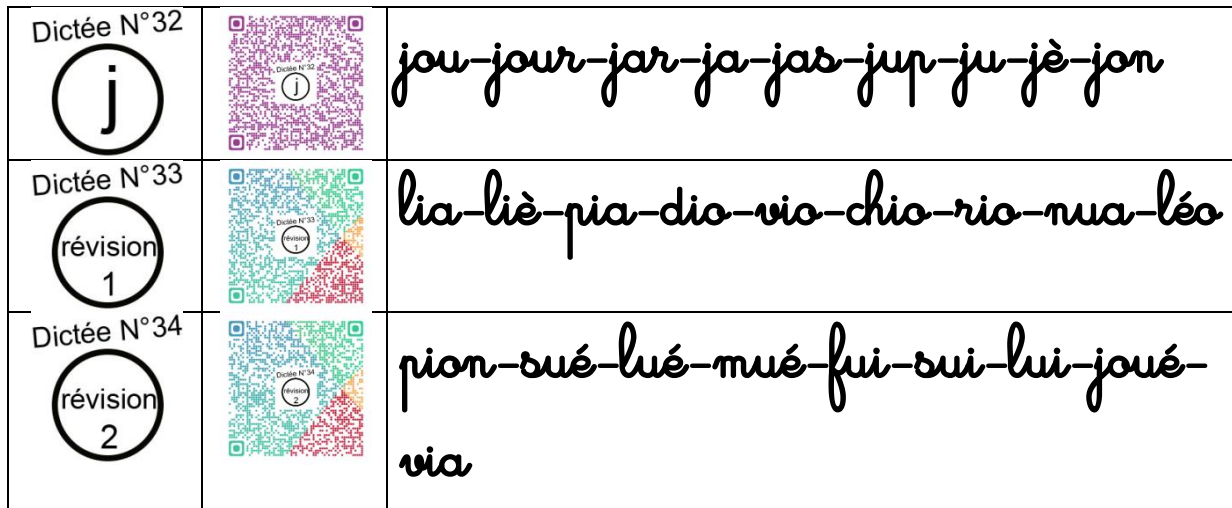 Dictée N°32
j
Dictée N°32
j
jou-jour-jar-ja-jas-jup-ju-jè-jon
Dictée N°33
révision
1
Dictée N°33
révision
1
lia-liè-pia-dio-vio-chio-rio-nua-léo
Dictée N°34
révision
2
Dictée N°34
révision
2
pion-sué-lué-mué-fui-sui-lui-joué-
via